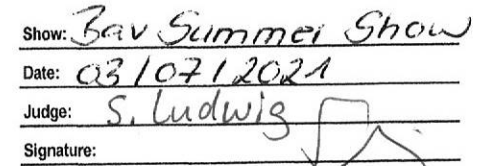 Show: Bav Summer Show
Date: 03/07/2021
Judge: S. Ludwig
Signature: